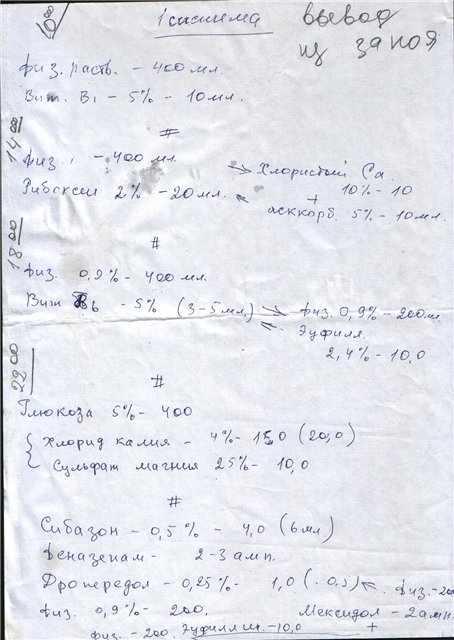 10⁰⁰ 1 система вывод
из запоя
физ. раств. - 400 мл.
Вит. В₁ - 5% - 10 мл.
#
14⁰⁰
физ. - 400 мл. → Хлористый Ca.
Рибоксин 2% - 20 мл. ← 10% - 10
+
аскорб. 5% - 10 мл.
#
18⁰⁰
физ. 0,9% - 400 мл.
Вит В₆ - 5% (3-5 мл) → физ. 0,9% - 200 мл.
← Эуфилл
2,4% - 10,0
22⁰⁰
#
Глюкоза 5% - 400
{ Хлорид калия - 4% - 15,0 (20,0)
Сульфат магния 25% - 10,0
#
Сибазон - 0,5% - 4,0 (6 мл)
феназепам - 2-3 амп.
Дропередол - 0,25% - 1,0 ( 0,5) ← физ. - 200
физ. 0,9% - 200. Мексидол - 2 амп.
физ. - 200. Эуфиллин. - 10,0 +